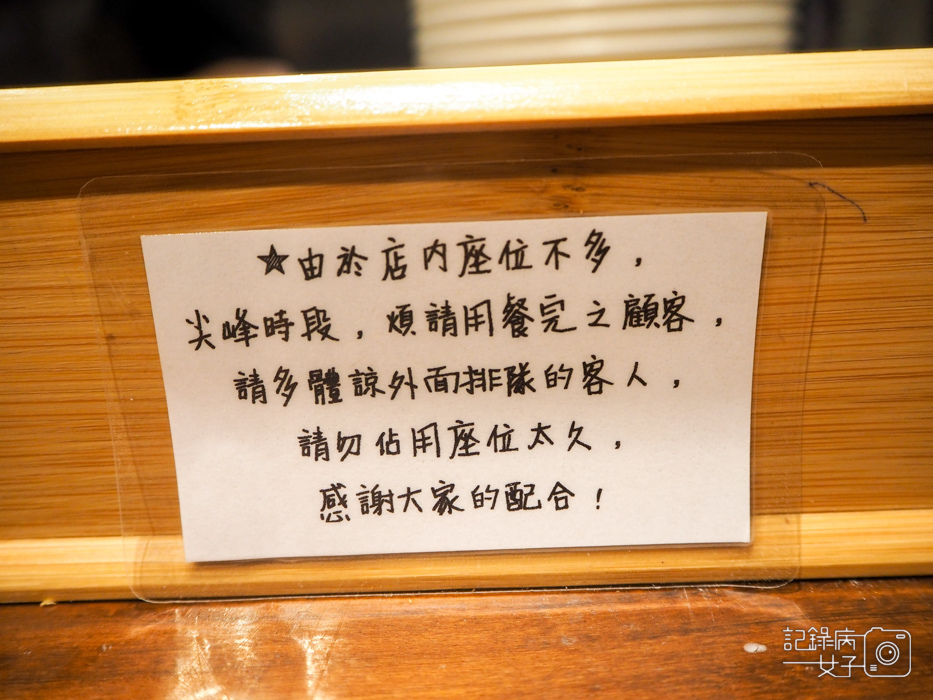 ★由於店内座位不多，
尖峰時段，煩請用餐完之顧客，
請多體諒外面排隊的客人，
請勿佔用座位太久，
感謝大家的配合！
記錄病
女子